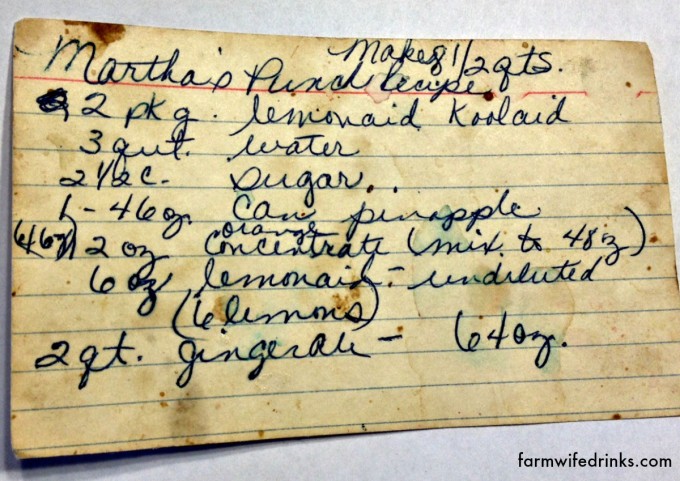 Makes 1/2 qts.
Martha's Punch Recipe
2 pkg. lemonaid Koolaid
3 qut. water
2 1/2 c. sugar
1 - 46 oz. can pinapple
orange
(46oz) 12 oz concentrate (mix to 48 z)
6 oz lemonaid - undiluted
(6 lemons)
2 qt. gingerale - 64 oz.
farmwifedrinks.com